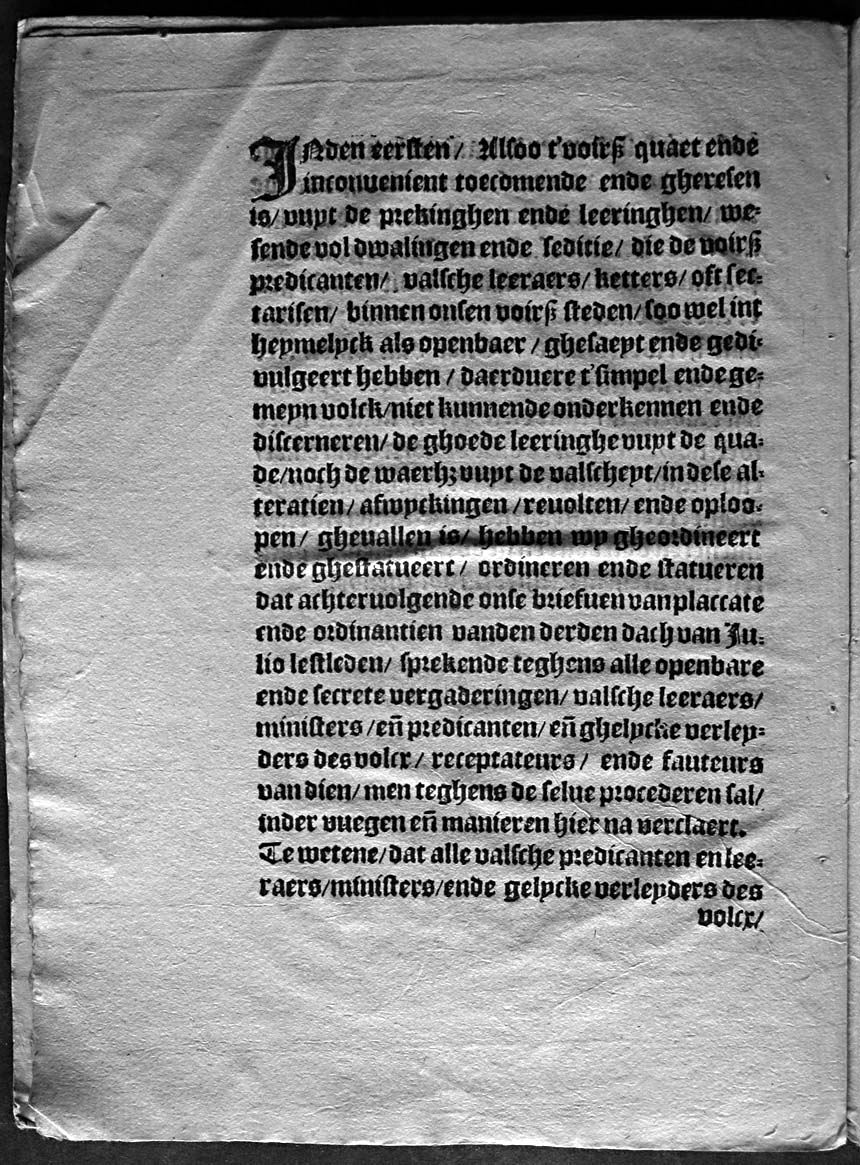 INden eersten/ Alsoo t'voirß quaet ende
inconuenient toecomende ende gheresen
is/ vuyt de prekinghen ende leeringhen/ we-
sende vol dwalingen ende seditie/ die de voirß
predicanten/ valsche leeraers/ ketters/ oft sec-
tarisen/ binnen onsen voirß steden/ soo wel int
heymelyck als openbaer / ghesaeyt ende gedi-
vulgeert hebben / daerduere t'simpel ende ge-
meyn volck/niet kunnende onderkennen ende
discerneren/ de ghoede leeringhe vuyt de qua-
de/noch de waerhꝫ vuyt de valscheyt/in dese al-
teratien/ afwyckingen /reuolten/ ende oploo-
pen/ gheuallen is/ hebben wy gheordineert
ende ghestatueert / ordineren ende statueren
dat achteruolgende onse briefuen van placcate
ende ordinantien vanden derden dach van Ju-
lio lestleden/ sprekende teghens alle openbare
ende secrete vergaderingen/ valsche leeraers/
ministers /eñ predicanten/ eñ ghelycke verley-
ders des volcx/ receptateurs/ ende fauteurs
van dien/ men teghens de selue procederen sal/
inder vuegen eñ manieren hier na verclaert.
Te wetene/dat alle valsche predicanten en lee-
raers/ministers/ende gelycke verleyders des
volcx/